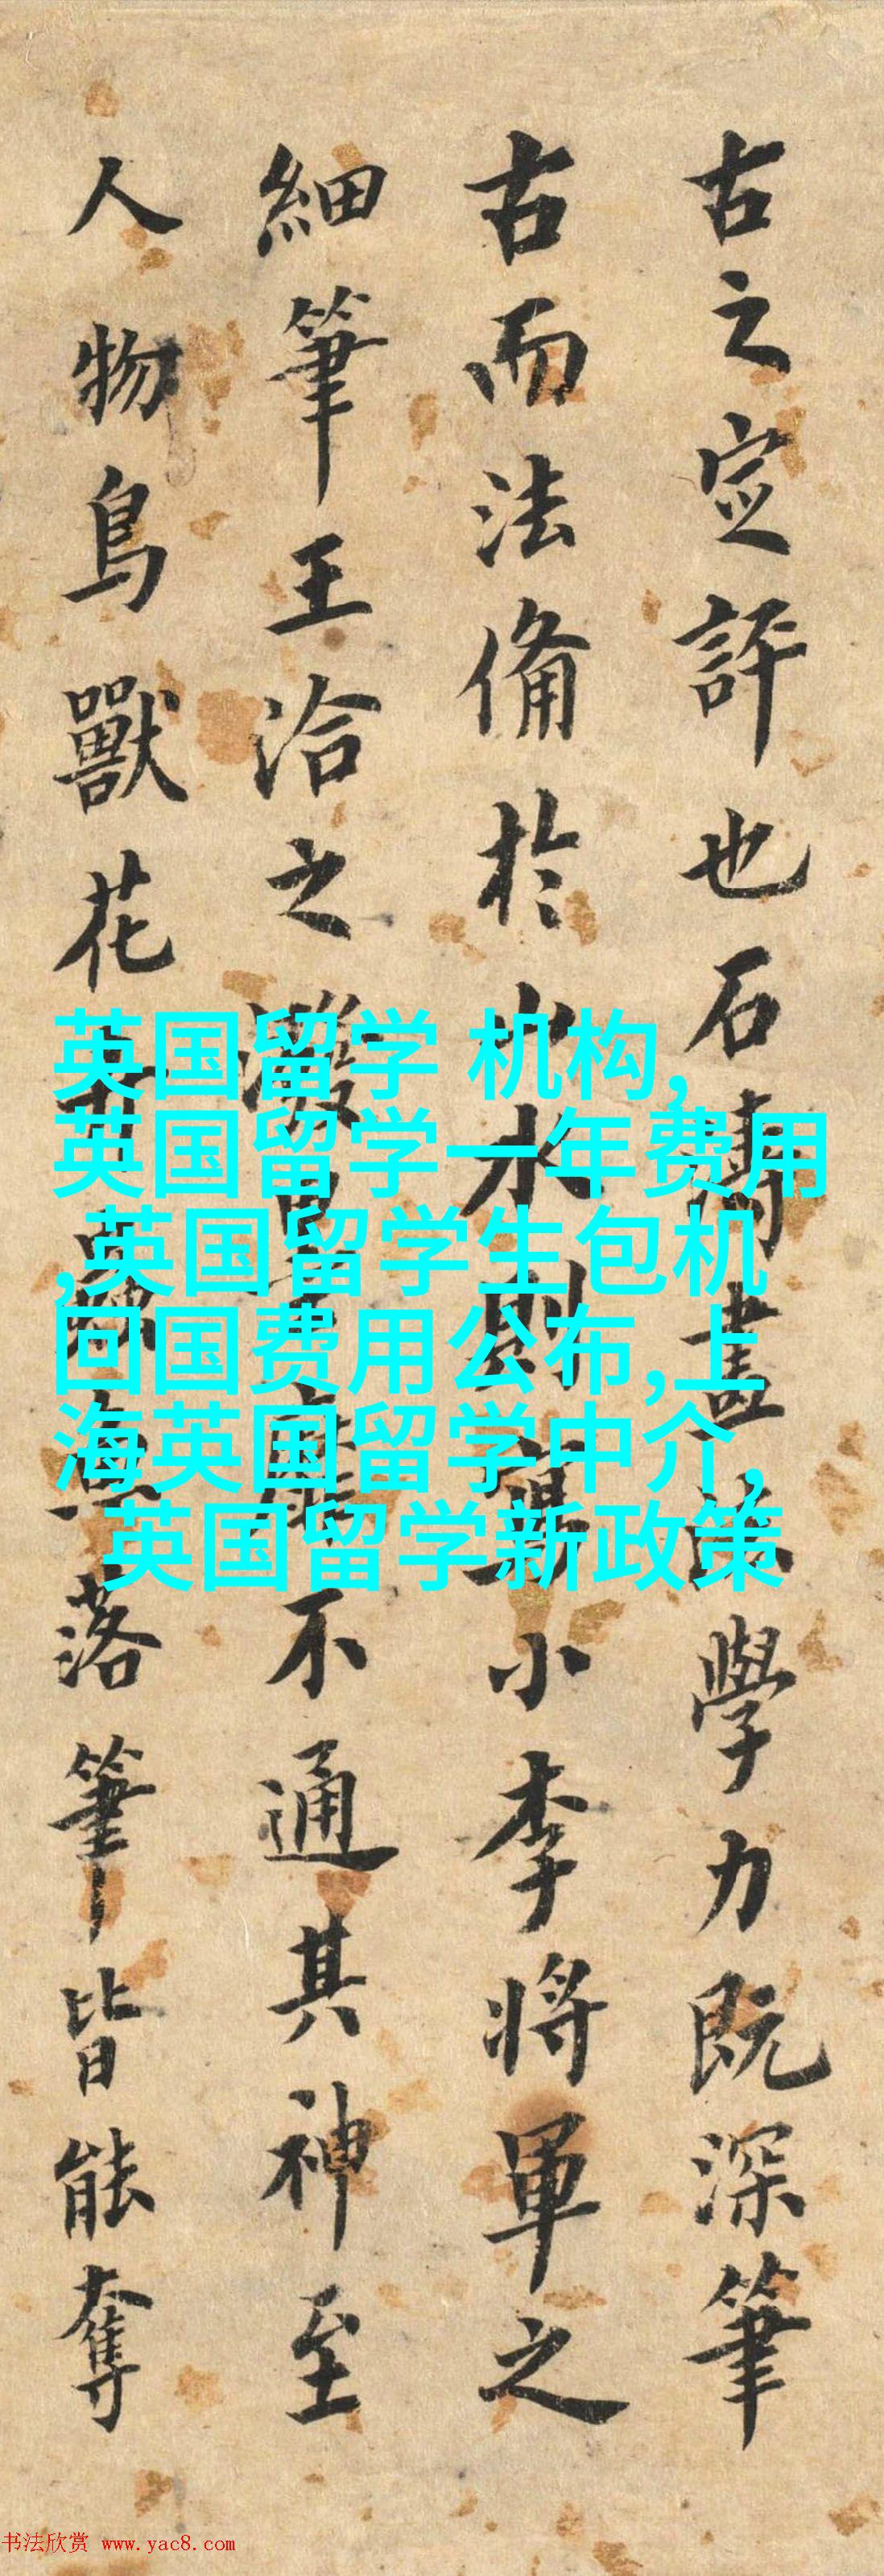 古之定評也石[...]畫法學力既深筆
古而法備於山水則寫小李將軍之
細筆王洽之潑墨靡不通其神至
人物鳥獸花[...]落筆皆能奪
英国留学 机构,
英国留学一年费用
,英国留学生包机
回国费用公布,上
海英国留学中介,
英国留学新政策
书法欣赏 www.yac8.com